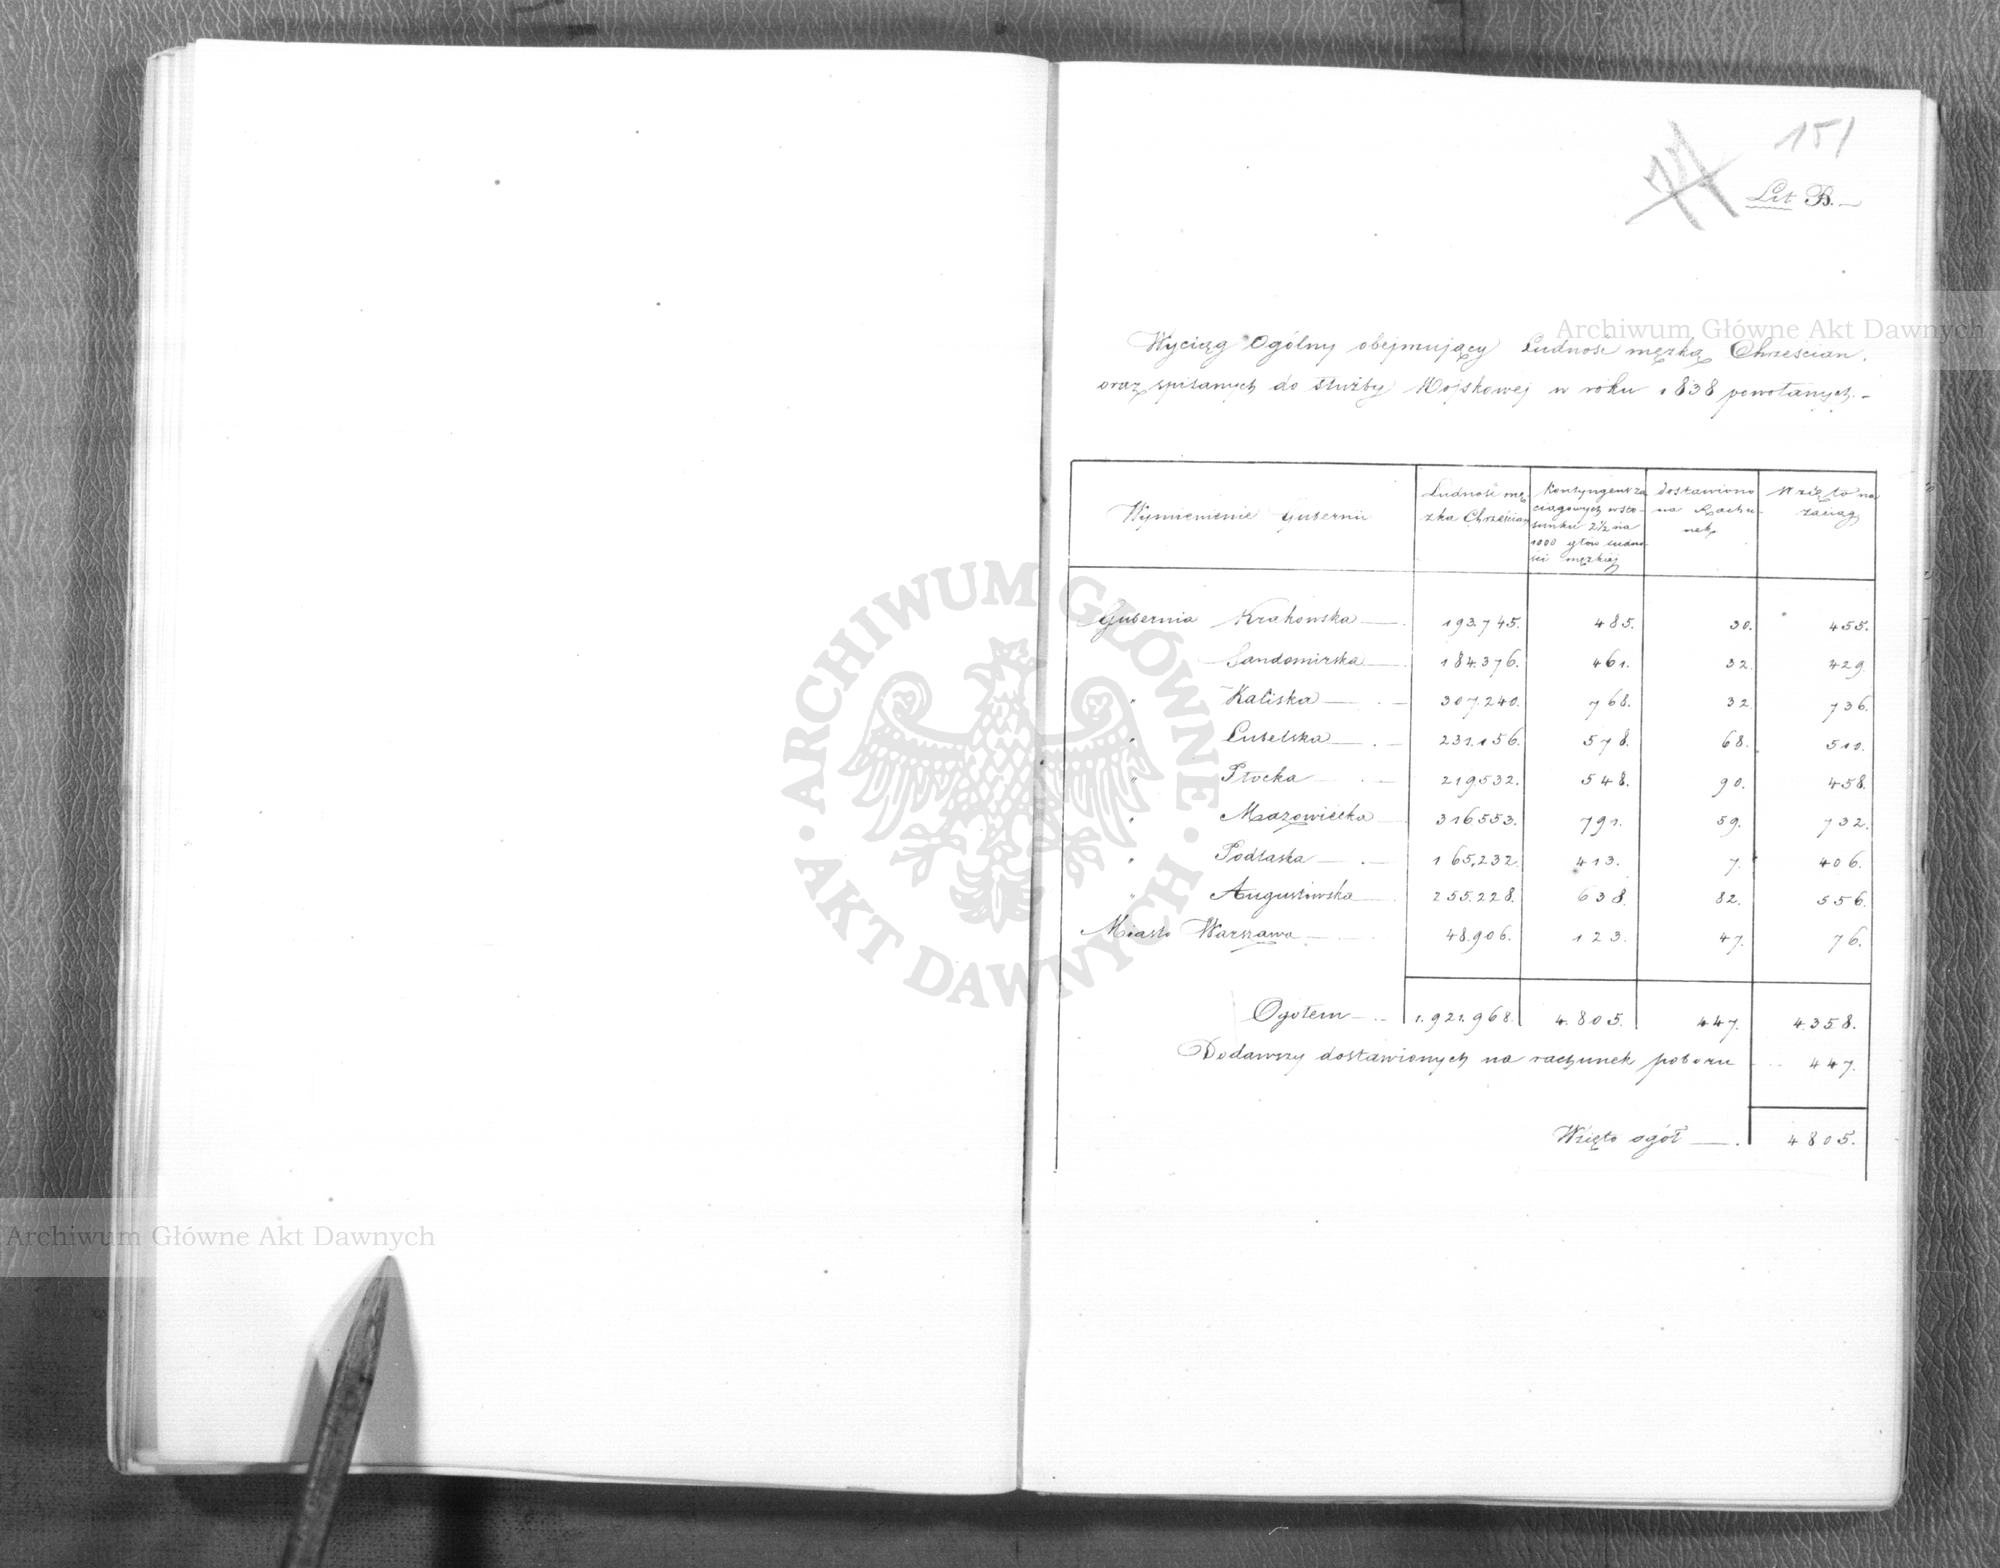 151
77
Lit B.
Wyciąg Ogólny obejmujący Ludność męzką Chrześcian,
oraz spisanych do służby Wojskowej w roku 1838 powołanych.
Wymienienie Gubernii
Ludność mę-
zka Chrześcian
Kontyngens za
ciągowych w sto-
sunku 2½ na
1000 głów ludno-
ści męzkiej
dostawiono
na Rachu-
nek
Wzięto na
zaciąg
Gubernia Krakowska 193.745. 485. 30. 455.
Sandomirska 184.376. 461. 32. 429.
" Kaliska 307.240. 768. 32. 736.
" Lubelska 231.156. 578. 68. 510.
" Płocka 219.532. 548. 90. 458.
" Mazowiecka 316553. 791. 59. 732.
" Podlaska 165.232. 413. 7. 406.
" Augustowska 255.228. 638. 82. 556.
Miasto Warszawa 48.906. 123. 47. 76.
Ogołem 1.921.968. 4.805. 447. 4.358.
Dodawszy dostawionych na rachunek poboru 447.
Wzięto ogół 4805.
Archiwum Główne Akt Dawnych
ARCHIWUM GŁÓWNE • AKT DAWNYCH •
Archiwum Główne Akt Dawnych